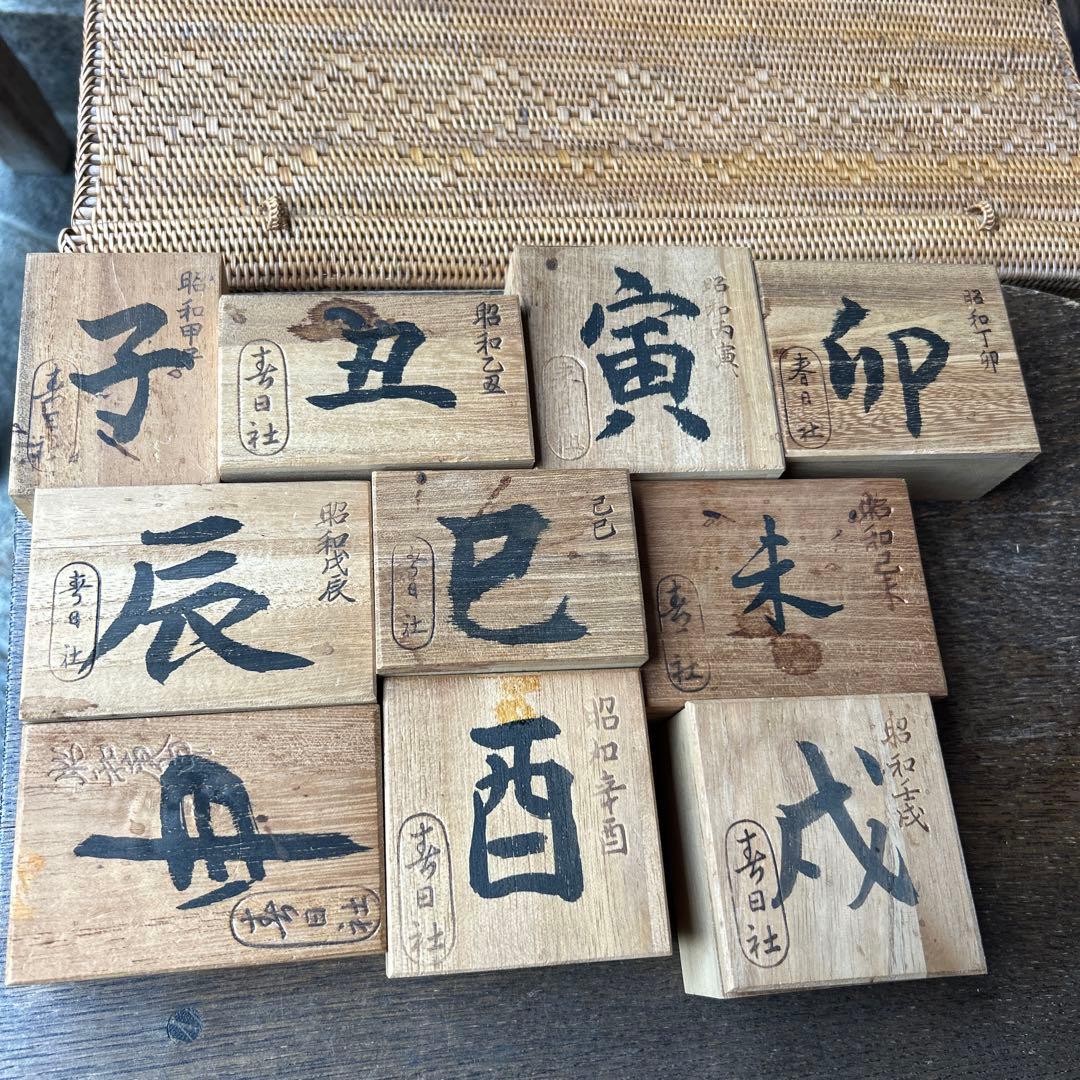 昭和甲子
子
春日社
昭和乙丑
丑
春日社
昭和丙寅
寅
昭和丁卯
卯
春日社
昭和戊辰
辰
春日社
己巳
巳
春日社
昭和己未
未
春日社
申
春日社
昭和辛酉
酉
春日社
昭和壬戌
戌
春日社